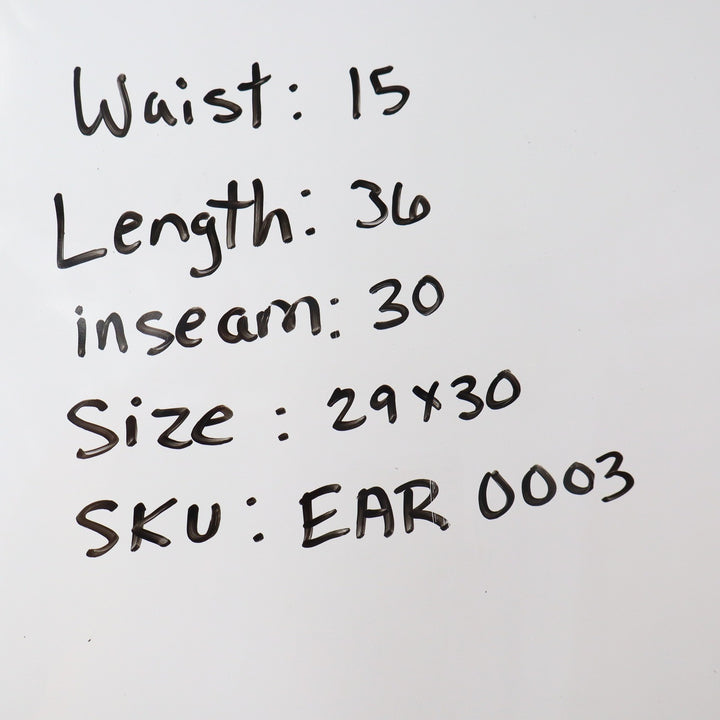 Waist: 15
Length: 36
inseam: 30
Size: 29x30
SKU: EAR 0003